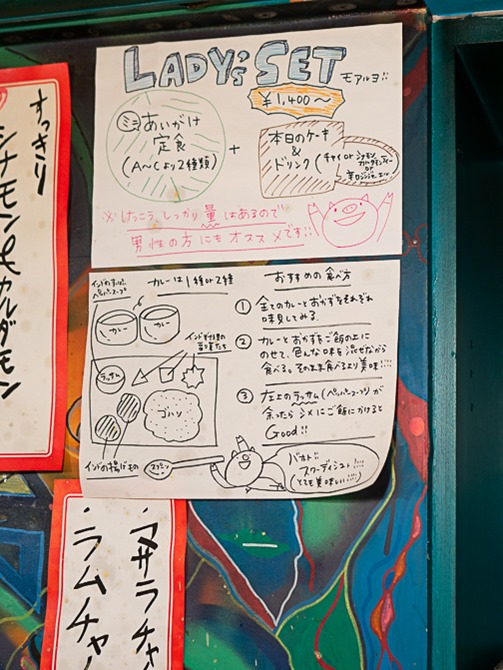 LADY'S SET モアルヨ!!
¥1,400〜
あいがけ
定食
(A〜Cより2種類)
+
本日のケーキ
&
ドリンク(チャイ or
or
※けっこうしっかり量はあるので
男性の方にもオススメです!!
すっきり
シナモン&カルダモン
カレーは1種or2種
カレー
カレー
ラッサム
ゴハン
インドの揚げ玉
おすすめの食べ方
① 全てのカレーとおかずをそれぞれ
味見してみる。
② カレーとおかずをご飯の上に
のせて、色んな味を混ぜながら
食べる。そのまま食べるより美味!!!
③ 左上のラッサム(ペッパースープ)が
余ったらシメにご飯にかけると
Good!!
バホト!!
スワーディシュト!!!!
(とても美味しい!!!)
・マサラチャ
・ラムチャ